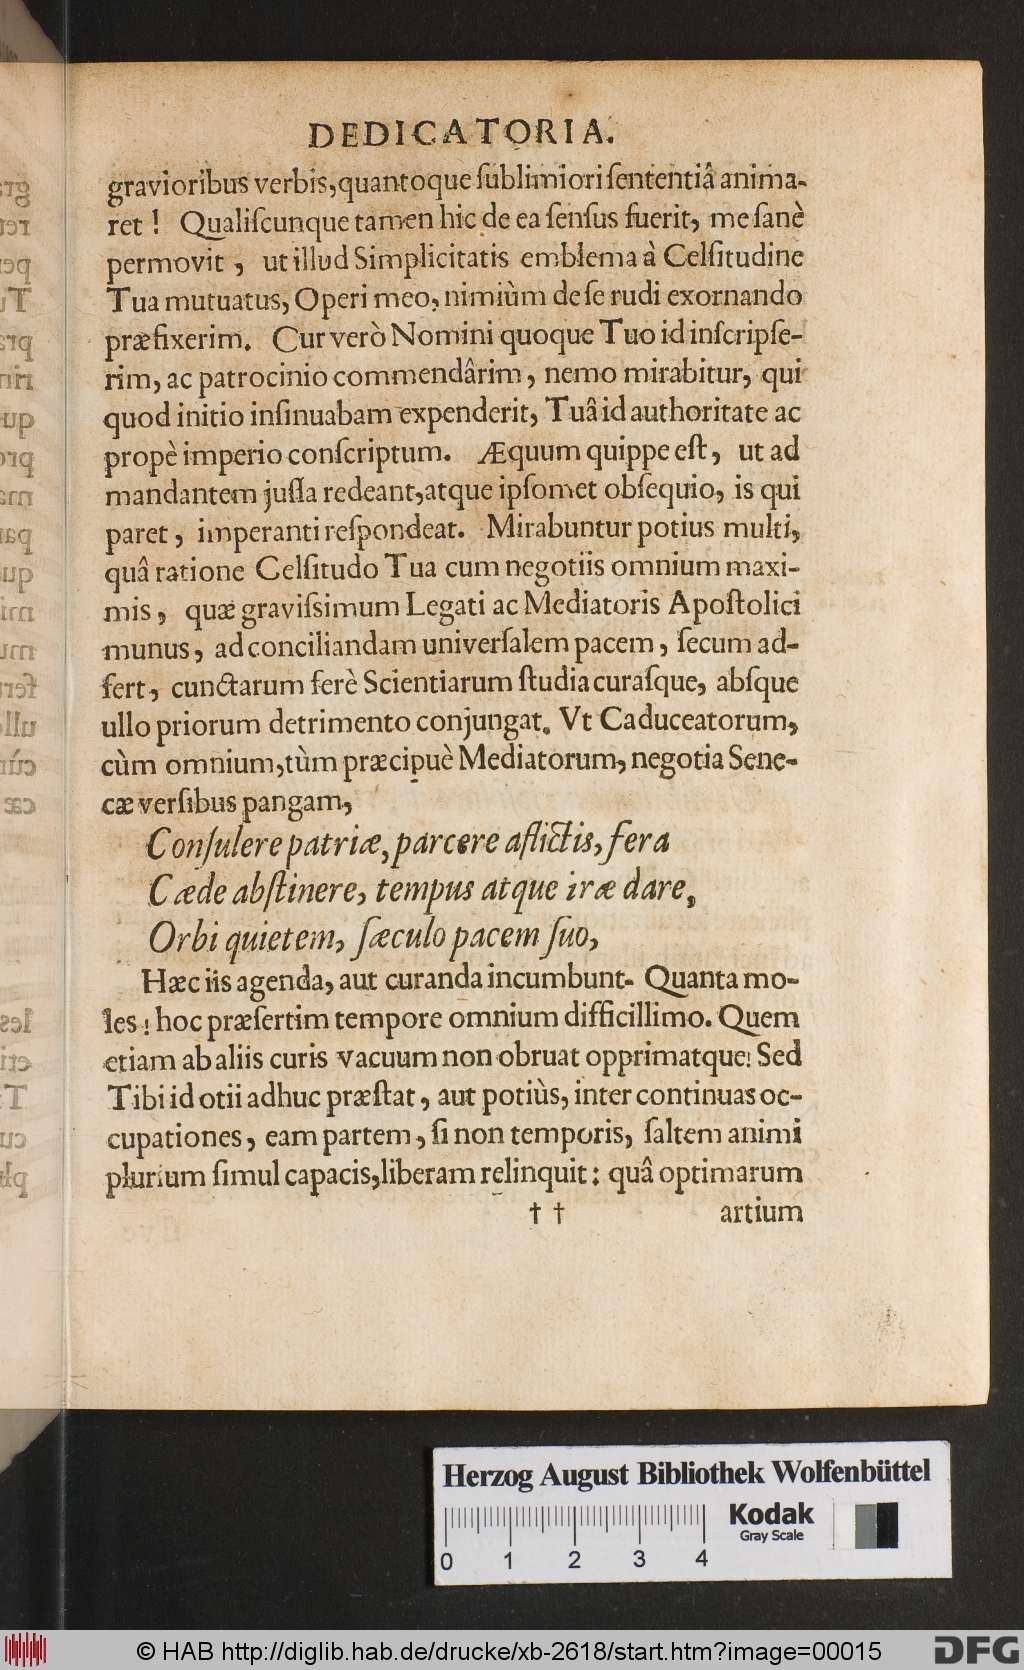 DEDICATORIA.
gravioribus verbis, quantoque ſublimiori ſententiâ anima-
ret! Qualiſcunque tamen hic de ea ſenſus fuerit, me ſanè
permovit, ut illud Simplicitatis emblema à Celſitudine
Tua mutuatus, Operi meo, nimiùm de ſe rudi exornando
præfixerim. Cur verò Nomini quoque Tuo id inſcripſe-
rim, ac patrocinio commendârim, nemo mirabitur, qui
quod initio inſinuabam expenderit, Tuâ id authoritate ac
propè imperio conſcriptum. Æquum quippe eſt, ut ad
mandantem juſſa redeant, atque ipſomet obſequio, is qui
paret, imperanti reſpondeat. Mirabuntur potius multi,
quâ ratione Celſitudo Tua cum negotiis omnium maxi-
mis, quæ graviſsimum Legati ac Mediatoris Apoſtolici
munus, ad conciliandam univerſalem pacem, ſecum ad-
fert, cunctarum ferè Scientiarum ſtudia curaſque, abſque
ullo priorum detrimento conjungat. Vt Caduceatorum,
cùm omnium, tùm præcipuè Mediatorum, negotia Sene-
cæ verſibus pangam,
Conſulere patriæ, parcere aflictis, fera
Cæde abſtinere, tempus atque iræ dare,
Orbi quietem, ſæculo pacem ſuo,
Hæc iis agenda, aut curanda incumbunt. Quanta mo-
les! hoc præſertim tempore omnium difficillimo. Quem
etiam ab aliis curis vacuum non obruat opprimatque! Sed
Tibi id otii adhuc præſtat, aut potiùs, inter continuas oc-
cupationes, eam partem, ſi non temporis, ſaltem animi
plurium ſimul capacis, liberam relinquit: quâ optimarum
† † artium
Herzog August Bibliothek Wolfenbüttel
Kodak
Gray Scale
0 1 2 3 4
© HAB http://diglib.hab.de/drucke/xb-2618/start.htm?image=00015
DFG